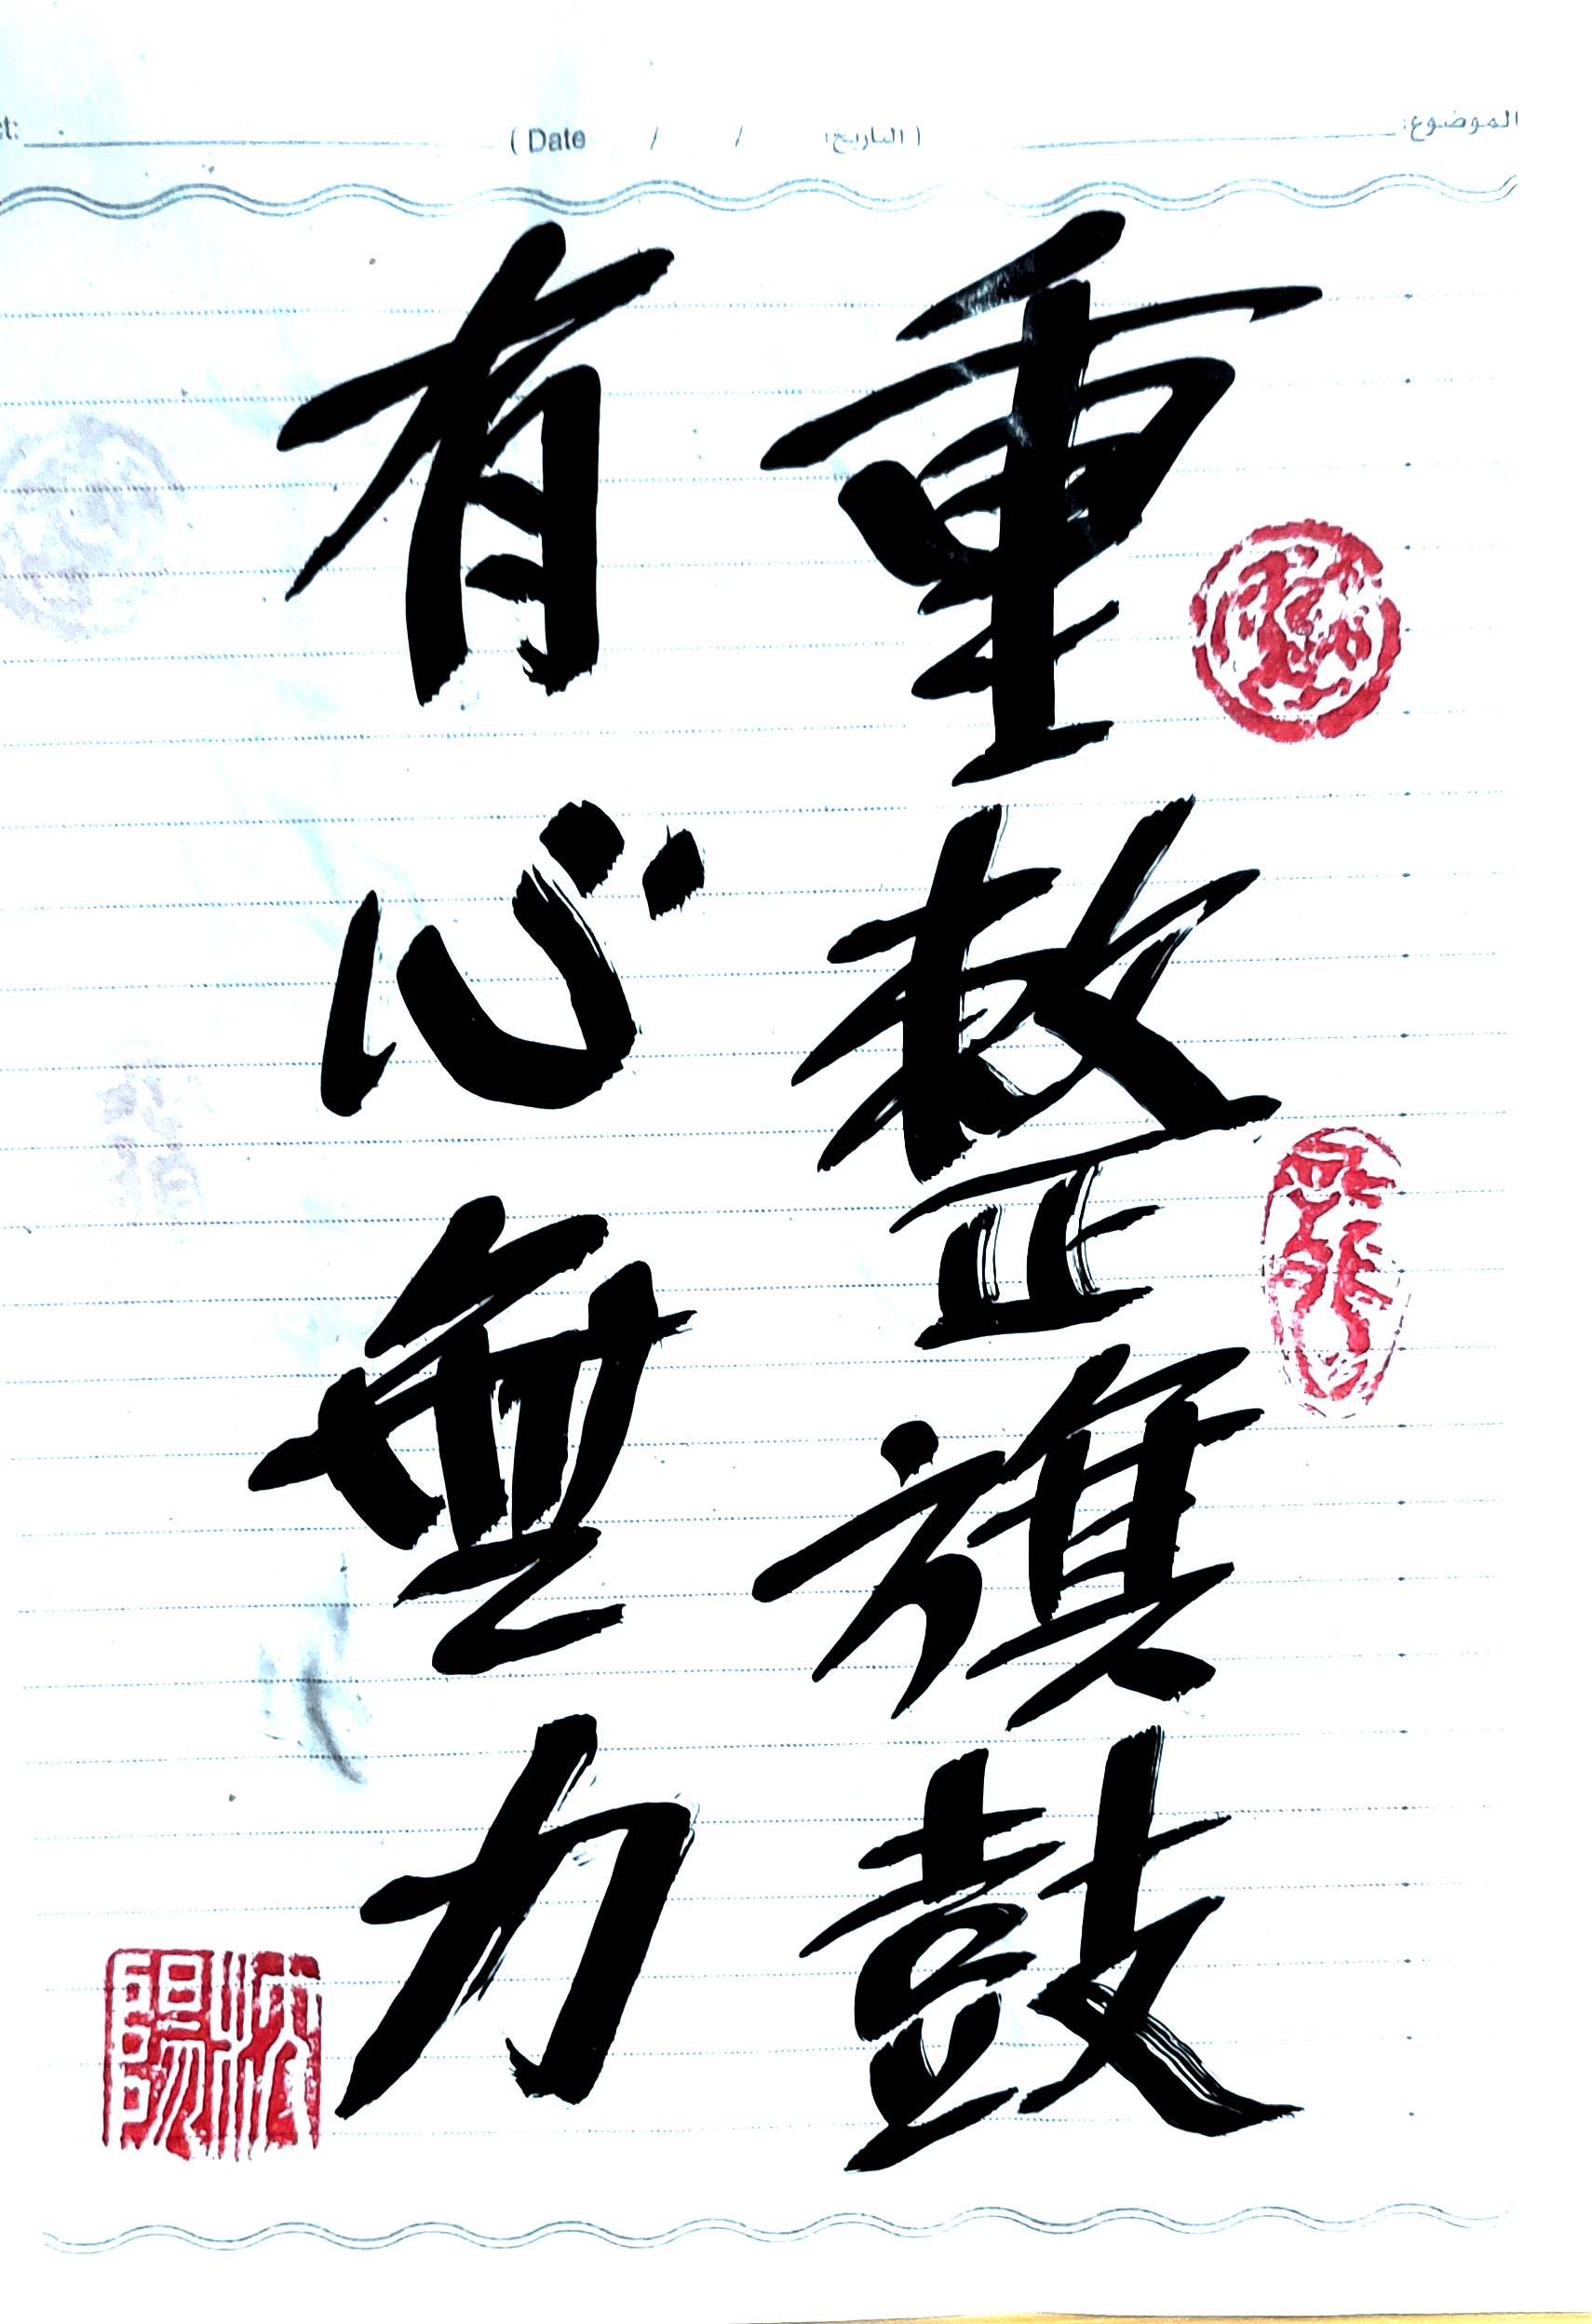 الموضوع:
( Date / / التاريخ )
ct:
重整旗鼓
有心無力